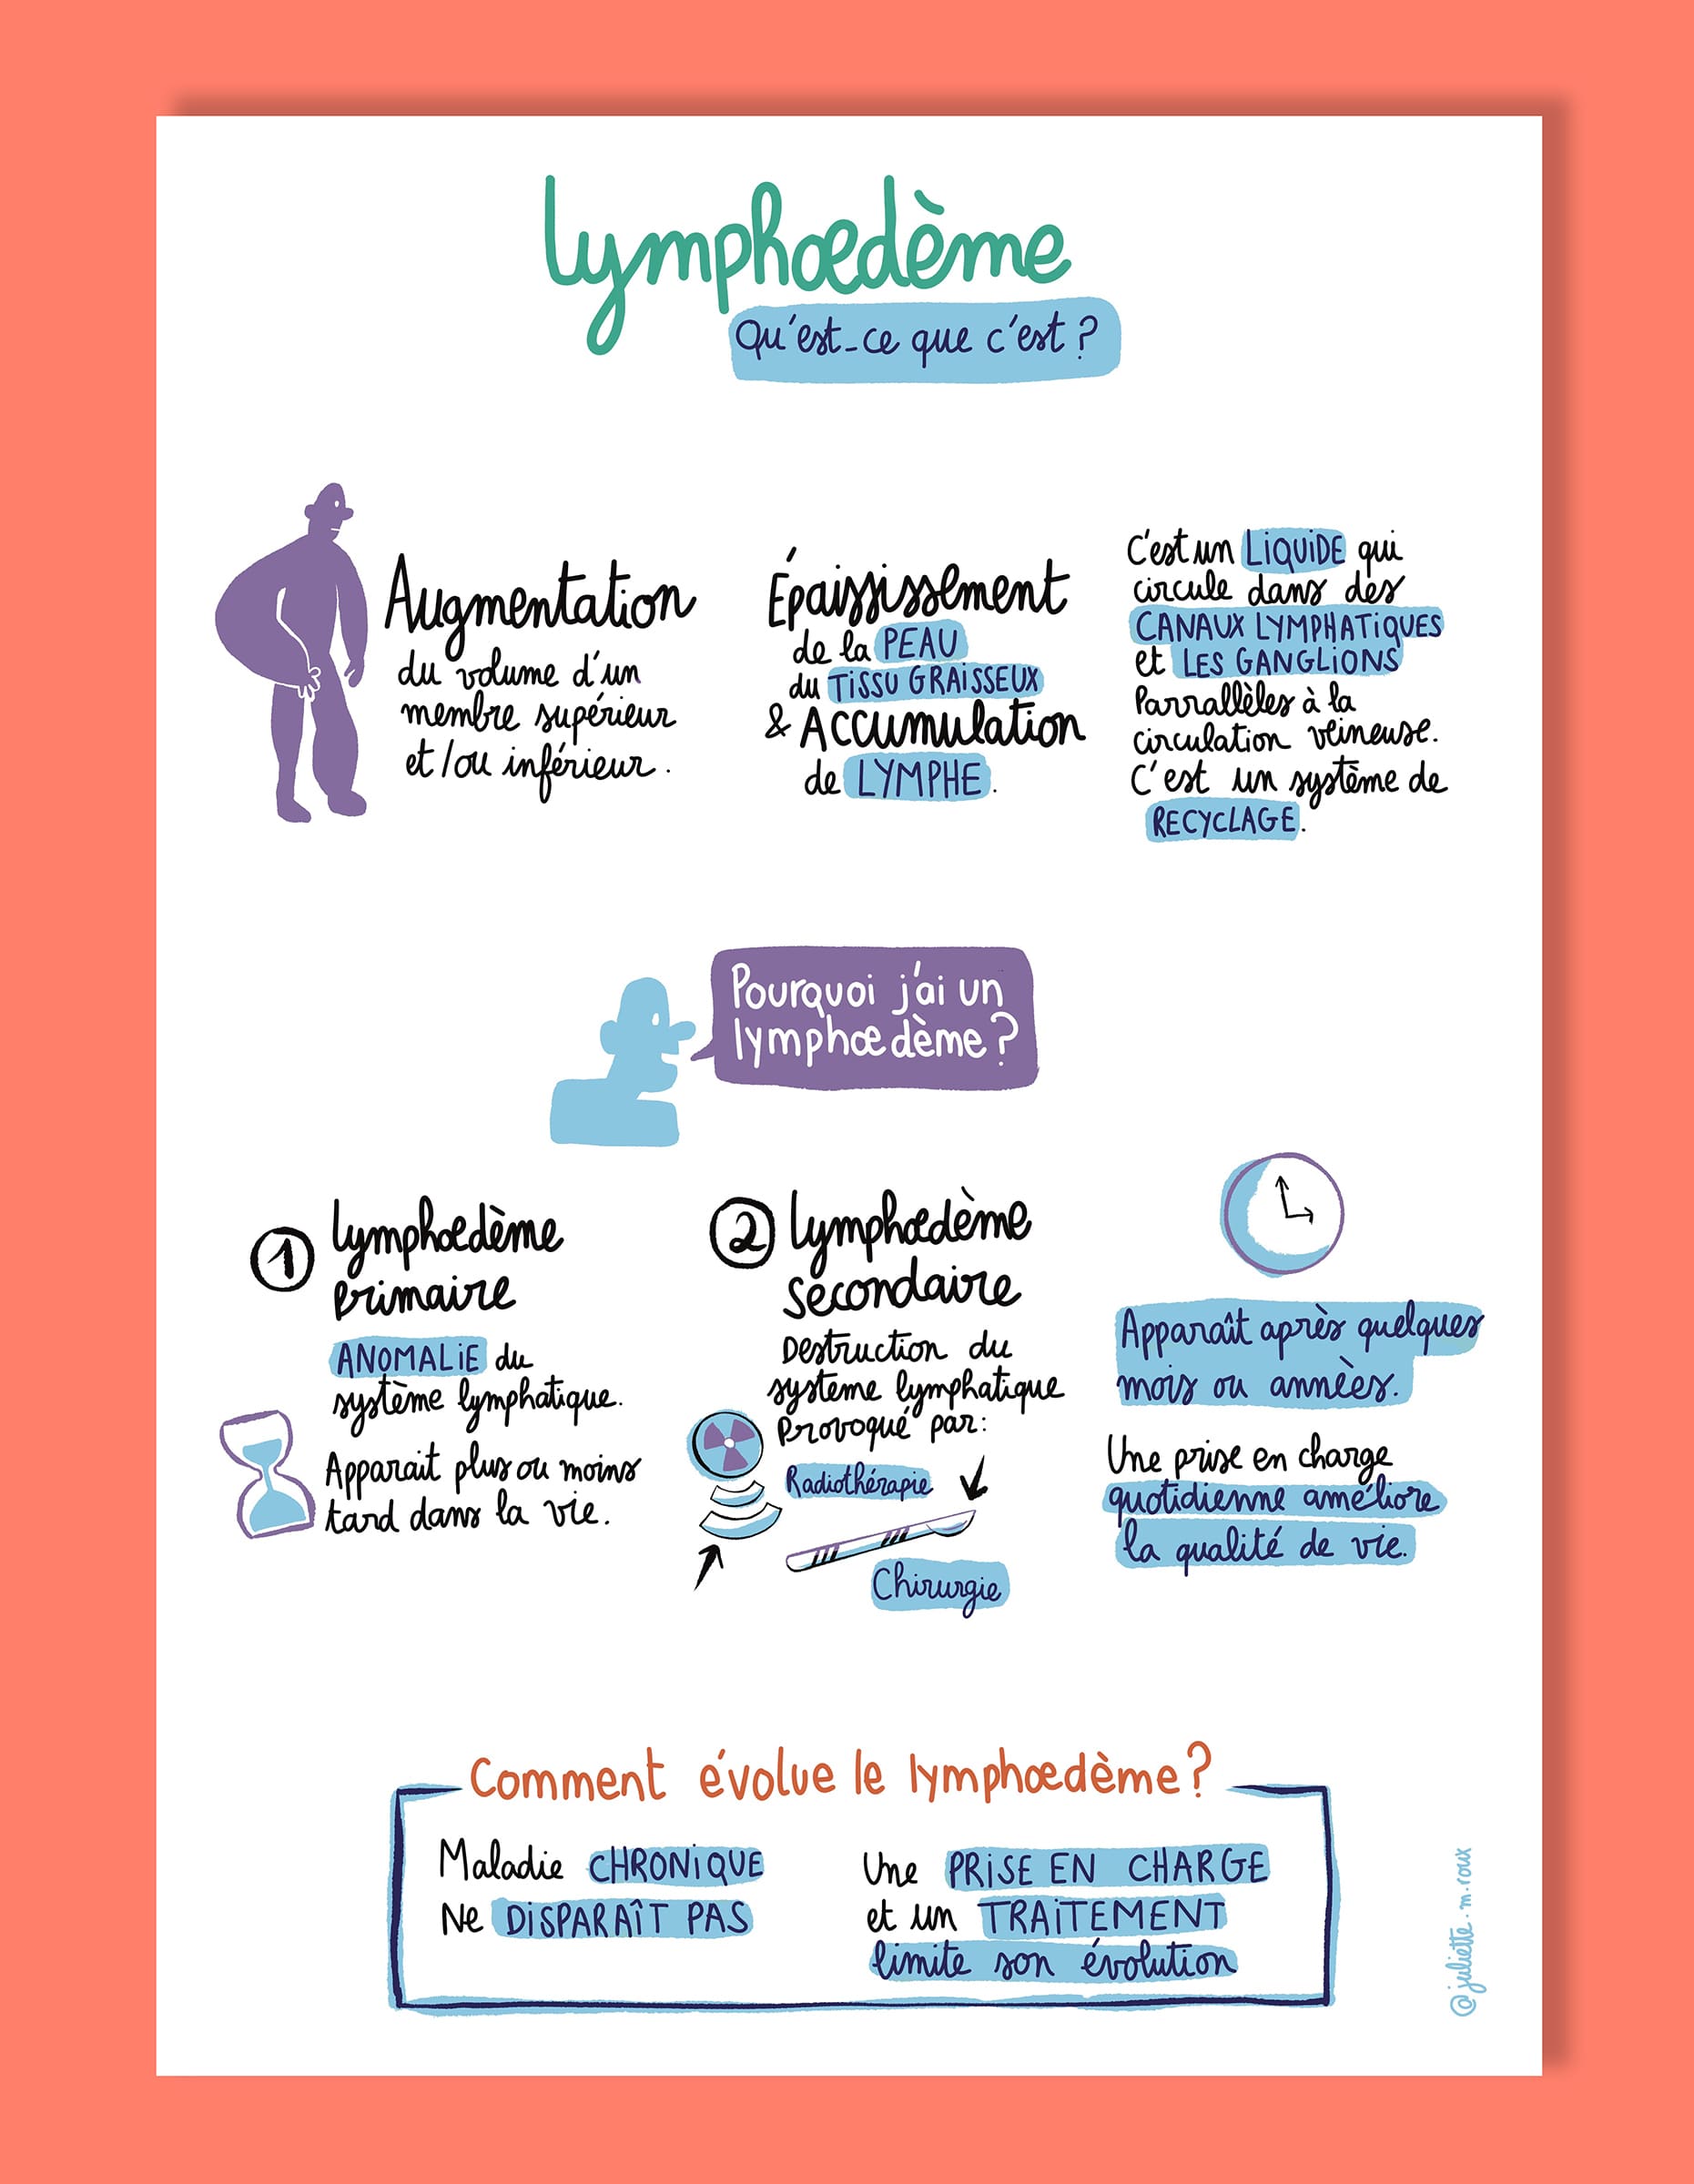 lymphœdème
Qu'est-ce que c'est ?
Augmentation
du volume d'un
membre supérieur
et/ou inférieur.
Épaississement
de la PEAU
du TISSU GRAISSEUX
& Accumulation
de LYMPHE.
C'est un LIQUIDE qui
circule dans des
CANAUX LYMPHATIQUES
et LES GANGLIONS
Parrallèles à la
circulation veineuse.
C'est un système de
RECYCLAGE.
Pourquoi j'ai un
lymphœdème ?
1 lymphœdème
primaire
ANOMALIE du
système lymphatique.
Apparait plus ou moins
tard dans la vie.
2 lymphœdème
secondaire
Destruction du
système lymphatique
Provoqué par :
Radiothérapie
Chirurgie
Apparaît après quelques
mois ou annèes.
Une prise en charge
quotidienne améliore
la qualité de vie.
Comment évolue le lymphœdème ?
Maladie CHRONIQUE
Ne DISPARAÎT PAS
Une PRISE EN CHARGE
et un TRAITEMENT
limite son évolution
@juliette.m.roux